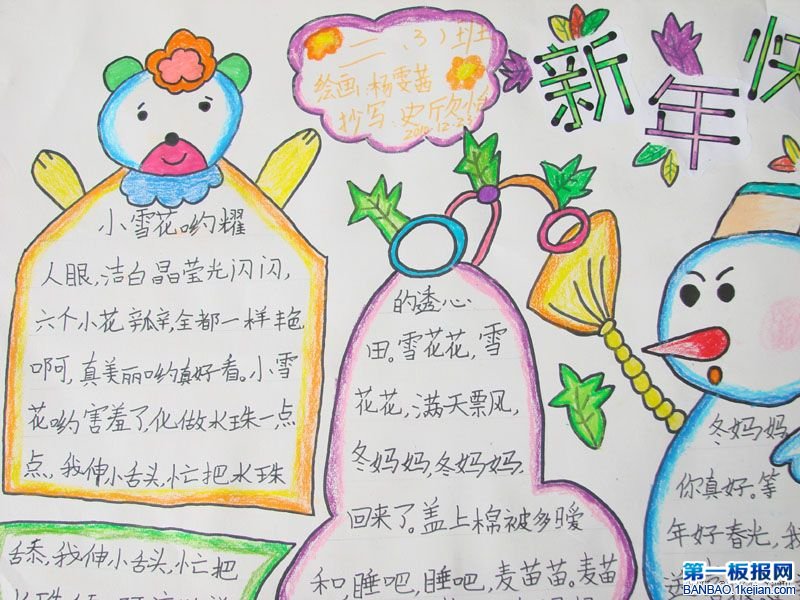 二（3）班
绘画：杨雯茜
抄写：史欣怡
2010.12.23
新年快
小雪花哟耀
人眼，洁白晶莹光闪闪，
六个小花瓣，全都一样艳
啊呵，真美丽哟真好看。小雪
花哟害羞了，化做水珠一点
点，我伸小舌头，忙把水珠
舔，我伸小舌头，忙把
的透心
田。雪花花，雪
花花，满天票风，
冬妈妈，冬妈妈
回来了。盖上棉被多暖
和睡吧，睡吧，麦苗苗。麦苗
冬妈妈，
你真好。等
年好春光，我
第一板报网
BANBAO.1kejian.com